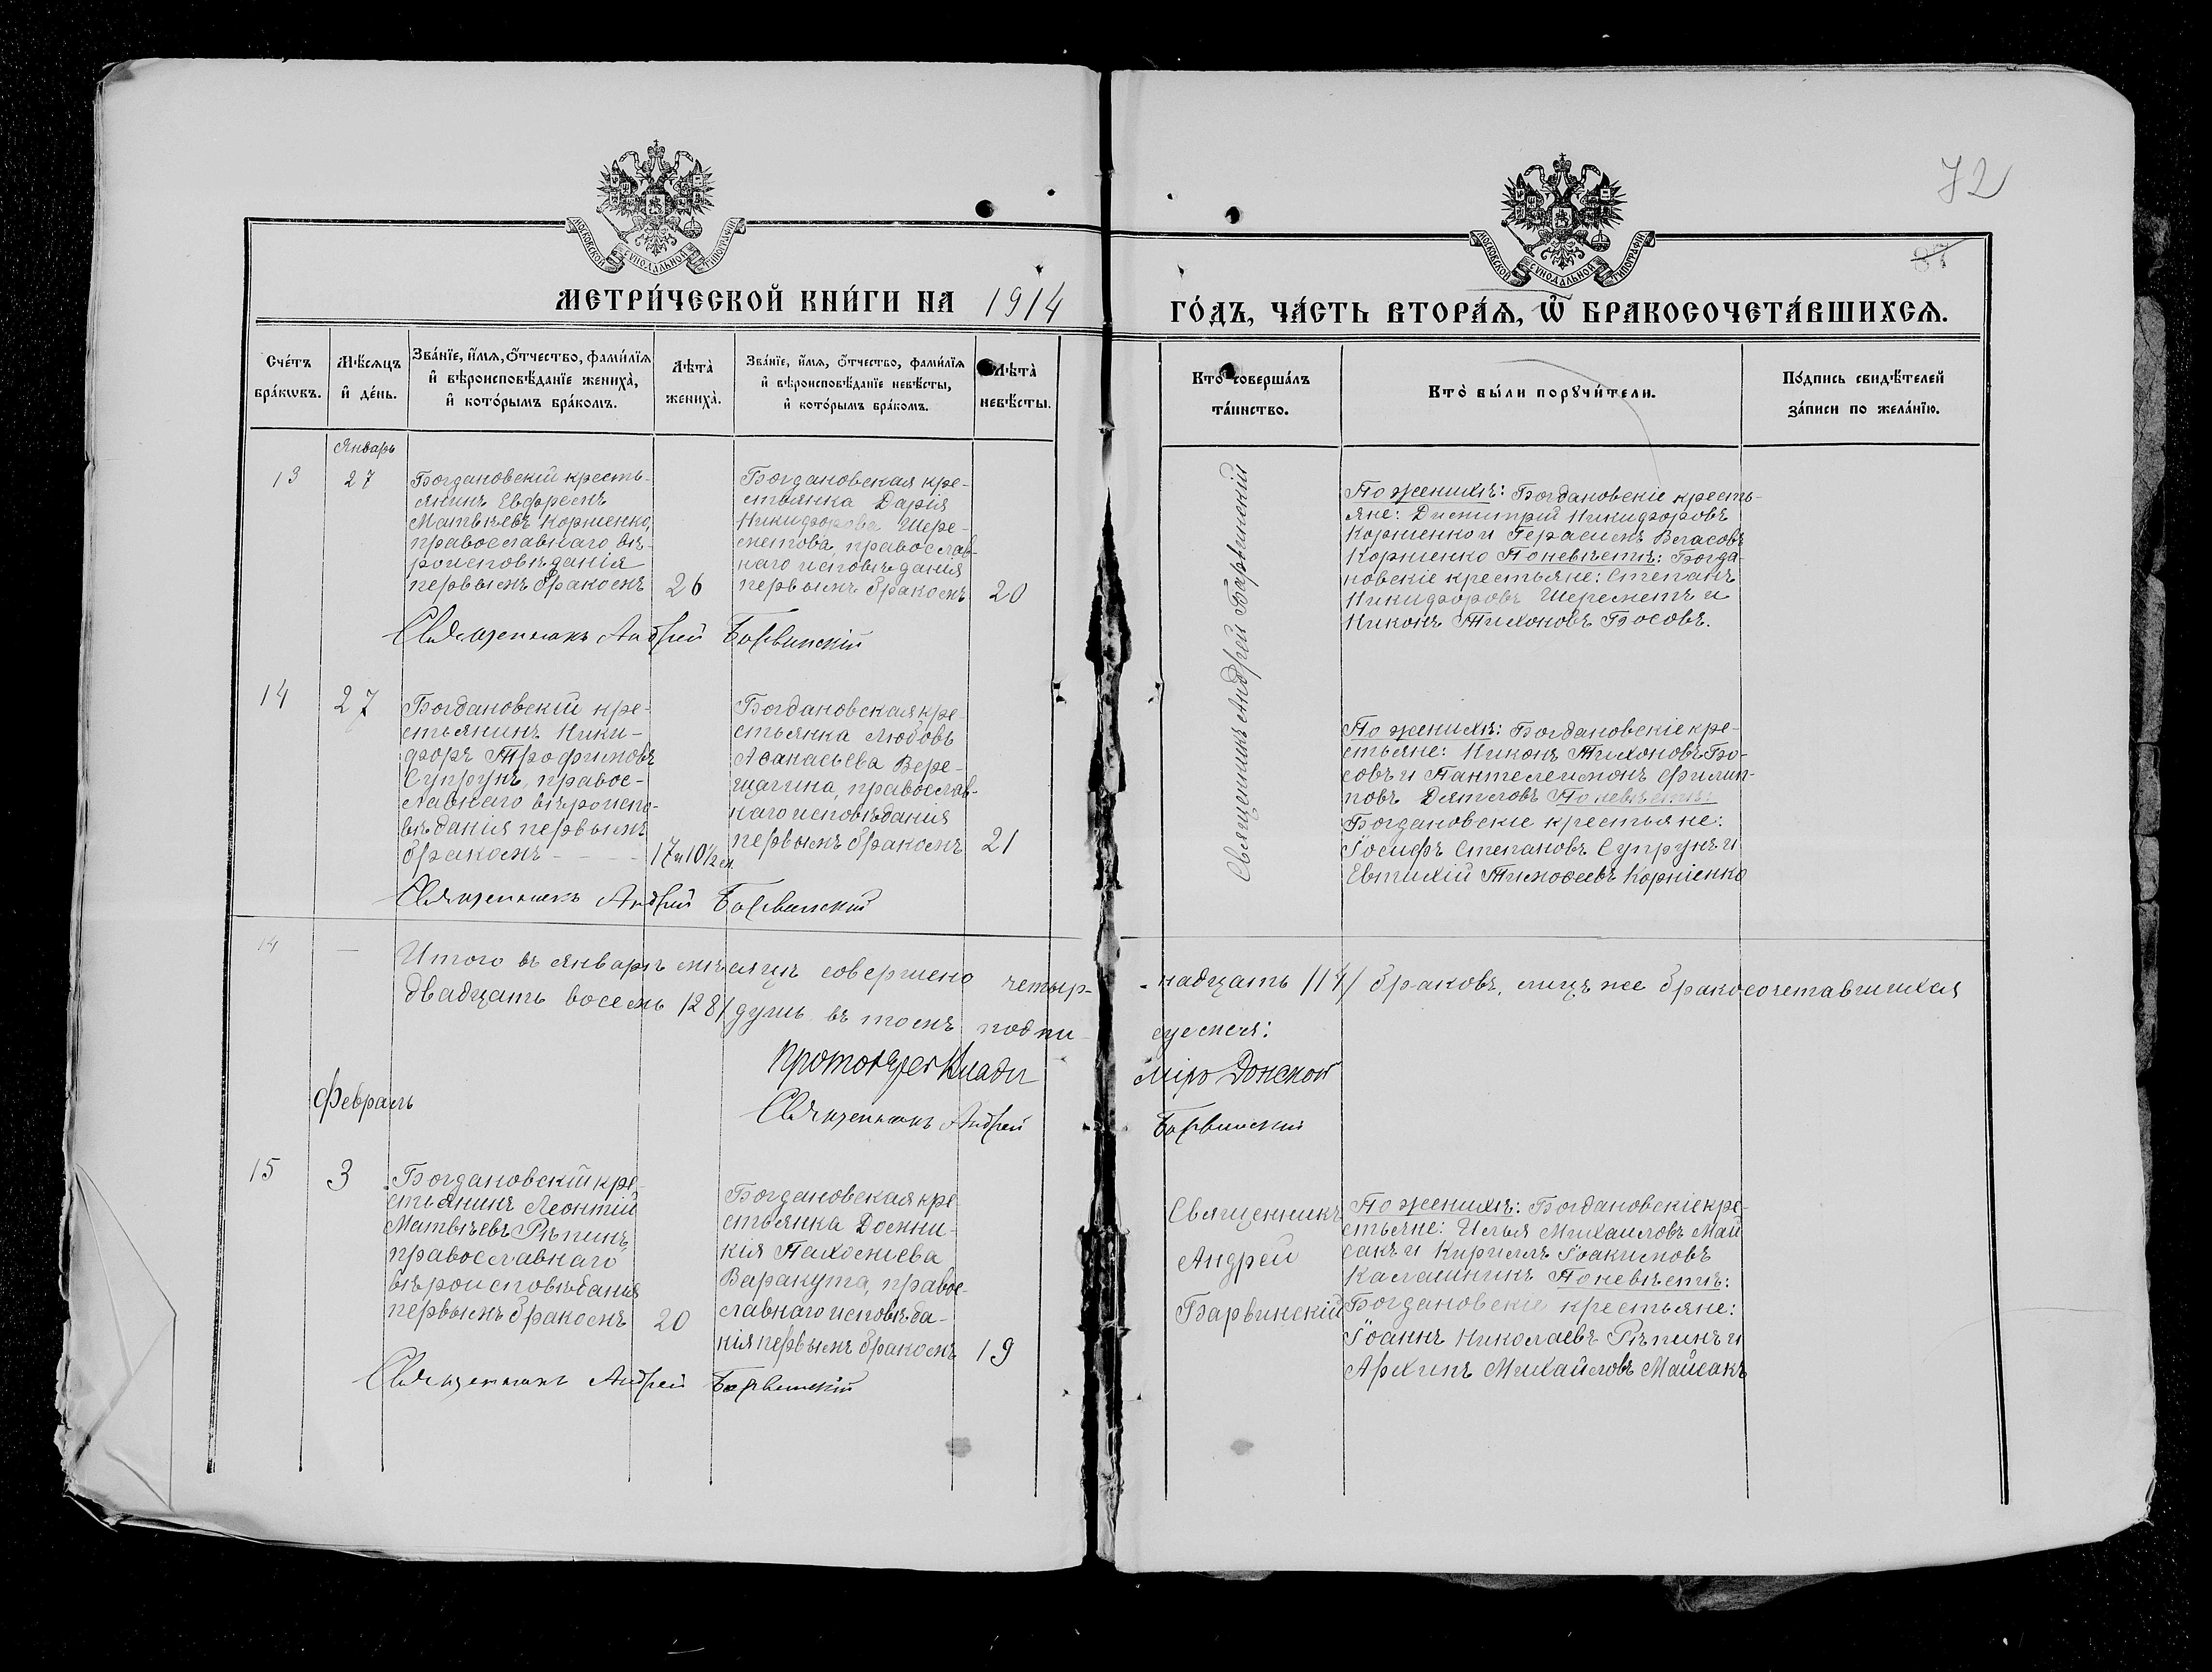 72
87
МОСКОВСКОЙ СѴНОДАЛЬНОЙ ТИПОГРАФІИ
МОСКОВСКОЙ СѴНОДАЛЬНОЙ ТИПОГРАФІИ
МЕТРИ́ЧЕСКОЙ КНИ́ГИ НА 1914
ГО́ДЪ, ЧА́СТЬ ВТОРА́Ѧ, Ѿ БРАКОСОЧЕТА́ВШИХСѦ.
Сче́тъ
бра́кѡвъ.
Мѣ́сѧцъ
и҆ де́нь.
Зва́нїе, и҆́мѧ, ѻ҆́тчество, фами́лїѧ
и҆ вѣроисповѣ́данїе жениха̀,
и҆ кото́рымъ бра́комъ.
Лѣта̀
жениха̀.
Зва́нїе, и҆́мѧ, ѻ҆́тчество, фами́лїѧ
и҆ вѣроисповѣ́данїе невѣ́сты,
и҆ кото́рымъ бра́комъ.
Лѣта̀
невѣ́сты.
Кто̀ соверша́лъ
та́инство.
Кто̀ бы́ли порꙋчи́тели.
По́дпись свидѣ́телей
за́писи по жела́нїю.
Январь
13
27
Богдановскій кресть-
янинъ Евфремъ
Матвѣевъ Корніенко,
православнаго вѣ-
роисповѣданія
первымъ бракомъ
26
Богдановская кре-
стьянка Дарія
Никифорова Шере-
метова, православ-
наго исповѣданія
первымъ бракомъ
20
Священникъ Андрей Барвинскій
Священникъ Андрей Барвинскій
По женихѣ: Богдановскіе кресть-
яне: Димитрій Никифоровъ
Корніенко и Герасимъ Власовъ
Корніенко По невѣстѣ: Богда-
новскіе крестьяне: Степанъ
Никифоровъ Шереметъ и
Никонъ Тихоновъ Босовъ.
14
27
Богдановскій кре-
стьянинъ Ники-
форъ Трофимовъ
Супрунъ, правос-
лавнаго вѣроиспо-
вѣданія первымъ
бракомъ - - - -
17 и 10½ м
Богдановская кре-
стьянка Любовь
Аѳанасьева Вере-
щагина, православ-
наго исповѣданія
первымъ бракомъ
21
Священникъ Андрей Барвинскій
По женихѣ: Богдановскіе кре-
стьяне: Никонъ Тихоновъ Бо-
совъ и Пантелеимонъ Филип-
повъ Дятловъ По невѣстѣ:
Богдановскіе крестьяне:
Іосифъ Степановъ Супрунъ и
Евтихій Тимоѳеевъ Корніенко
14 — Итого въ январѣ мѣсяцѣ совершено четыр-надцать /14/ браковъ, лицъ же бракосочетавшихся
двадцать восемь /28/ душъ въ томъ подпи-суемся:
Протоіерей Влади-міръ Донской
Священникъ Андрей Барвинскій
Февраль
15
3
Богдановскій кре-
стьянинъ Леонтій
Матвѣевъ Рѣпинъ,
православнаго
вѣроисповѣданія
первымъ бракомъ
20
Богдановская кре-
стьянка Домни-
кія Пахоміева
Варакута, правос-
лавнаго исповѣда-
нія первымъ бракомъ
19
Священникъ Андрей Барвинскій
Священникъ
Андрей
Барвинскій
По женихѣ: Богдановскіе кре-
стьяне: Илья Михаиловъ Май
сакъ и Кириллъ Іоакимовъ
Калашникъ По невѣстѣ:
Богдановскіе крестьяне:
Іоаннъ Николаевъ Рѣпинъ и
Архипъ Михайловъ Майсакъ